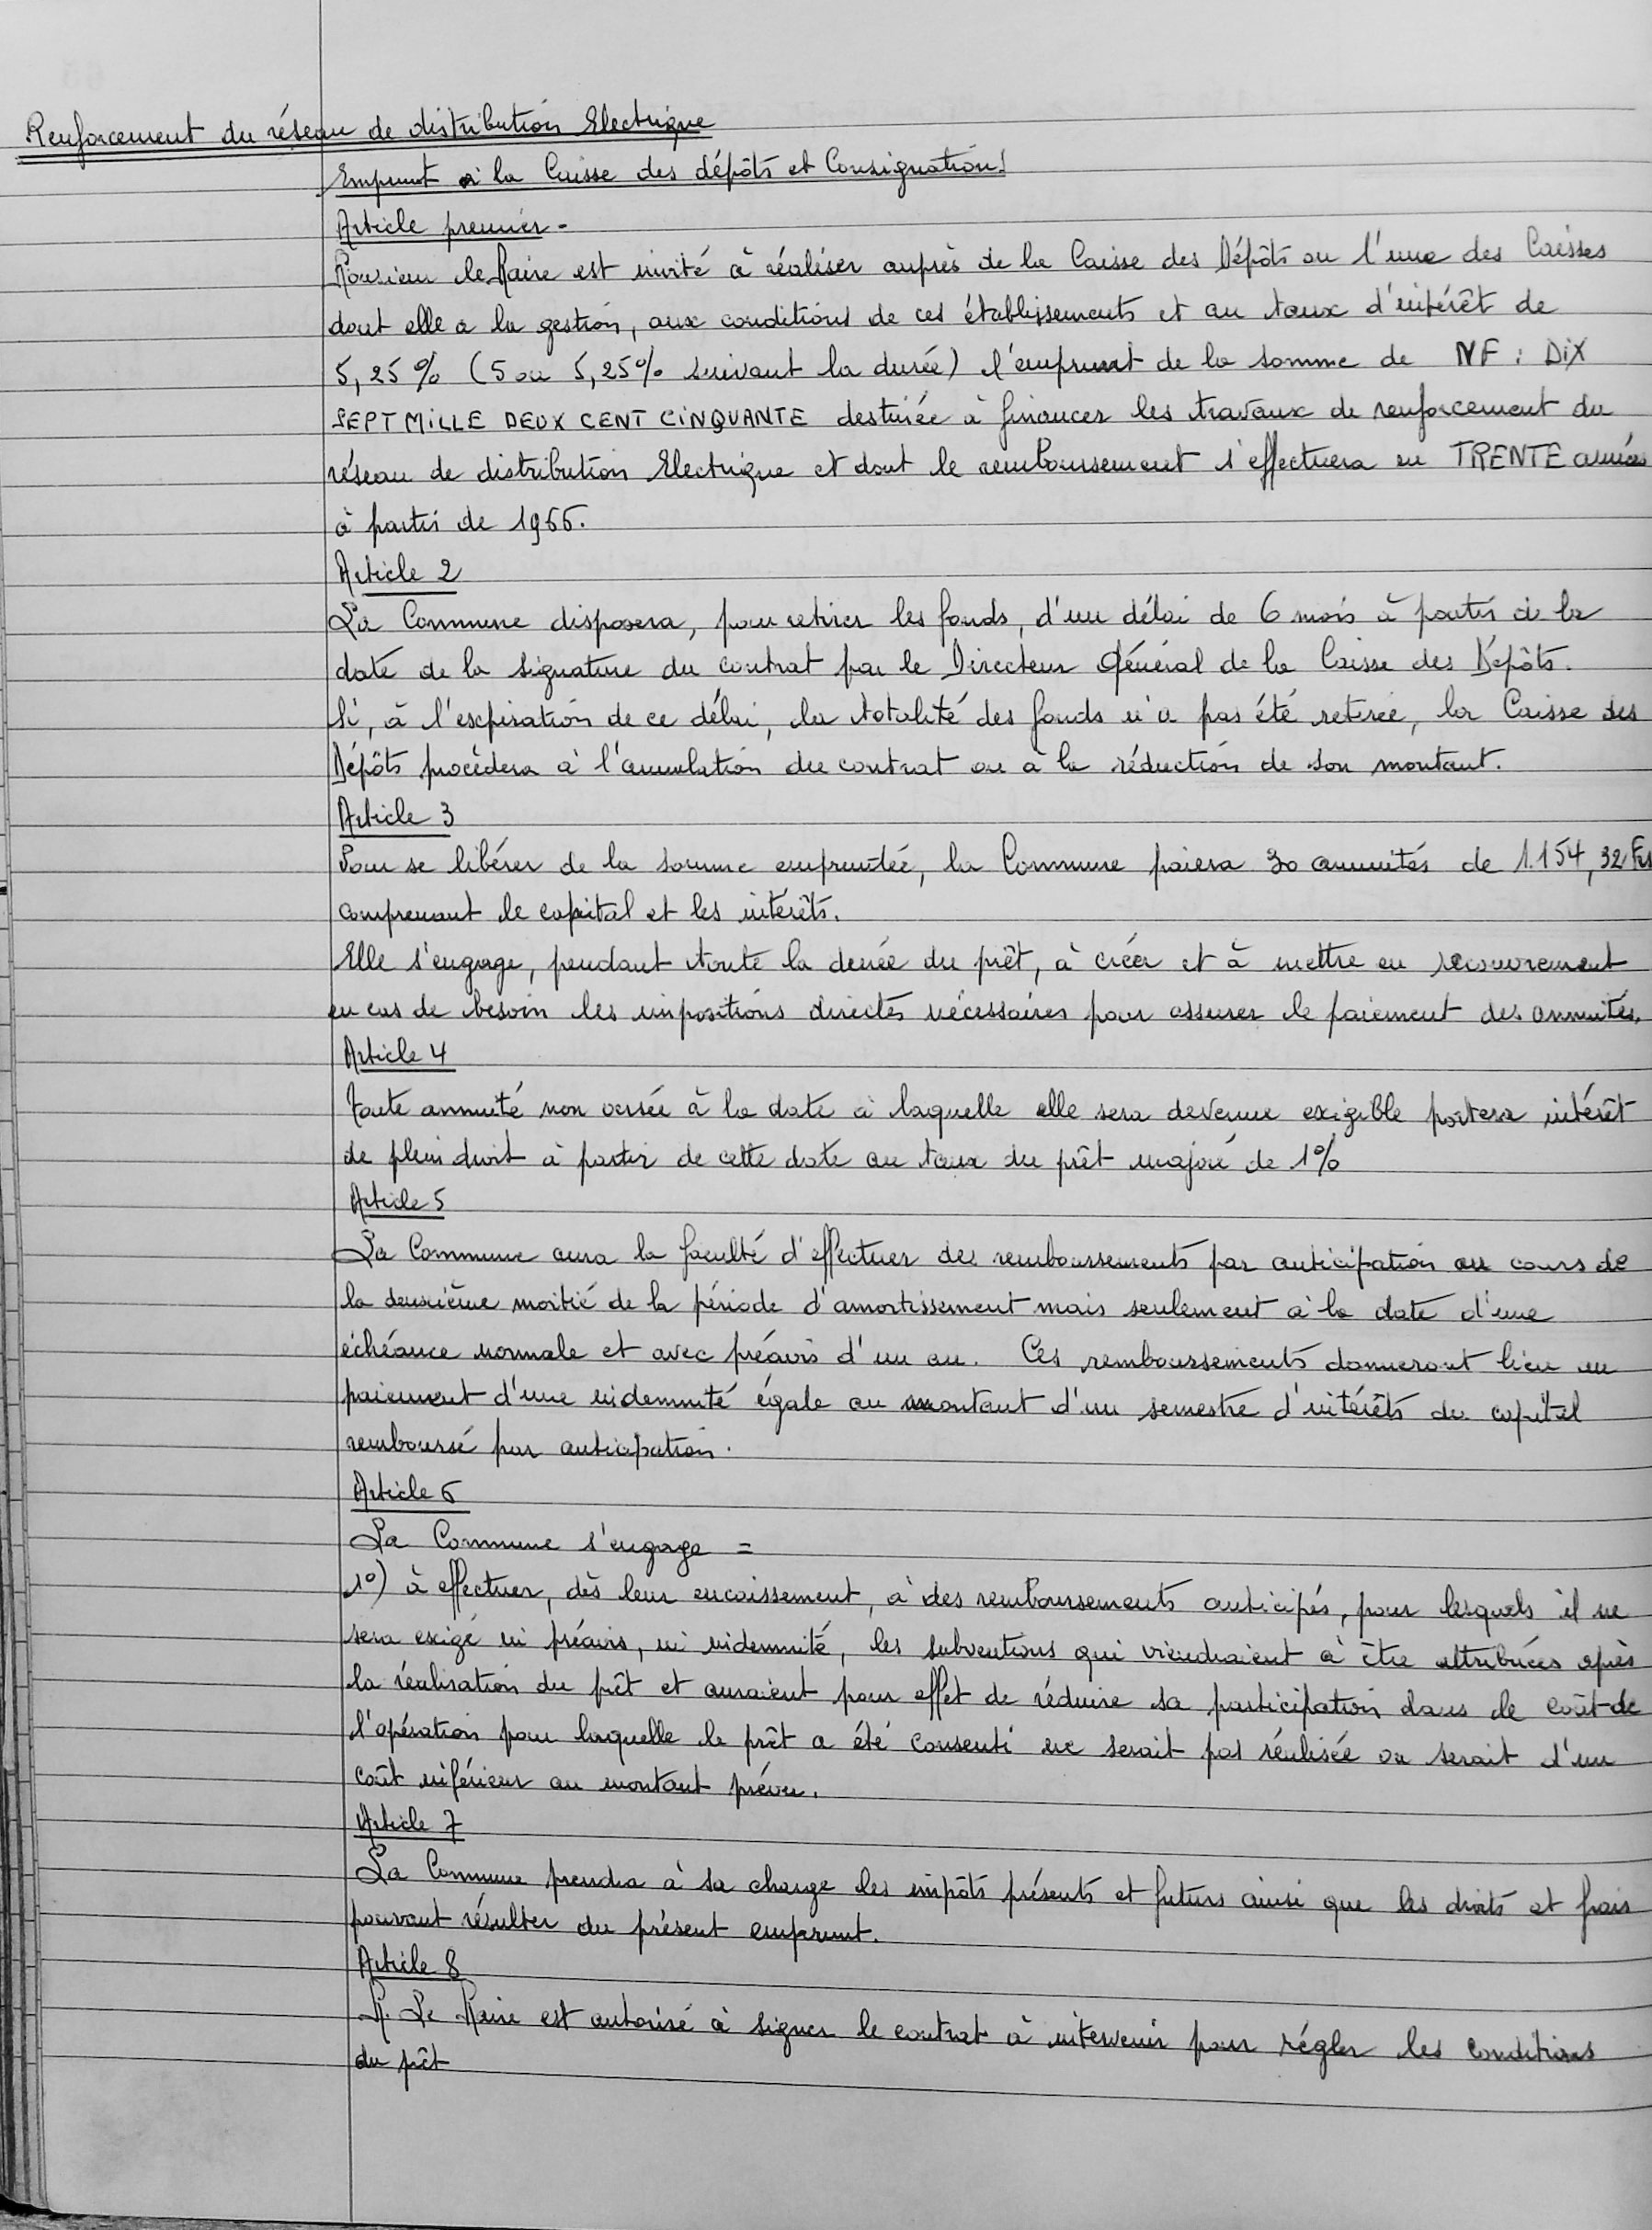 Renforcement du réseau de distribution Electrique
Emprunt à la Caisse des dépôts et Consignations
Article premier -
Monsieur le Maire est invité à réaliser auprès de la Caisse des Dépôts ou l'une des Caisses
dont elle a la gestion, aux conditions de ces établissements et au taux d'intérêt de
5,25 % (5 ou 5,25 % suivant la durée) l'emprunt de la somme de NF : DIX
SEPT MILLE DEUX CENT CINQUANTE destinée à financer les travaux de renforcement du
réseau de distribution Electrique et dont le remboursement s'effectuera en TRENTE années
à partir de 1966.
Article 2
La Commune disposera, pour retirer les fonds, d'un délai de 6 mois à partir de la
date de la signature du contrat par le Directeur Général de la Caisse des Dépôts.
Si, à l'expiration de ce délai, la totalité des fonds n'a pas été retirée, la Caisse des
Dépôts procèdera à l'annulation du contrat ou à la réduction de son montant.
Article 3
Pour se libérer de la somme empruntée, la Commune paiera 30 annuités de 1.154,32 Frs
comprenant le capital et les intérêts.
Elle s'engage, pendant toute la durée du prêt, à créer et à mettre en recouvrement
en cas de besoin les impositions directes nécessaires pour assurer le paiement des annuités.
Article 4
Toute annuité non versée à la date à laquelle elle sera devenue exigible portera intérêt
de plein droit à partir de cette date au taux du prêt majoré de 1%
Article 5
La Commune aura la faculté d'effectuer des remboursements par anticipation au cours de
la deuxième moitié de la période d'amortissement mais seulement à la date d'une
échéance normale et avec préavis d'un an. Ces remboursements donneront lieu au
paiement d'une indemnité égale au montant d'un semestre d'intérêts du capital
remboursé par anticipation.
Article 6
La Commune s'engage =
1°) à effectuer, dès leur encaissement, à des remboursements anticipés, pour lesquels il ne
sera exigé ni préavis, ni indemnité, les subventions qui viendraient à être attribuées après
la réalisation du prêt et auraient pour effet de réduire sa participation dans le coût de
l'opération pour laquelle le prêt a été consenti ne serait pas réalisée ou serait d'un
coût inférieur au montant prévu.
Article 7
La Commune prendra à sa charge les impôts présents et futurs ainsi que les droits et frais
pouvant résulter du présent emprunt.
Article 8
M. Le Maire est autorisé à signer le contrat à intervenir pour régler les conditions
du prêt